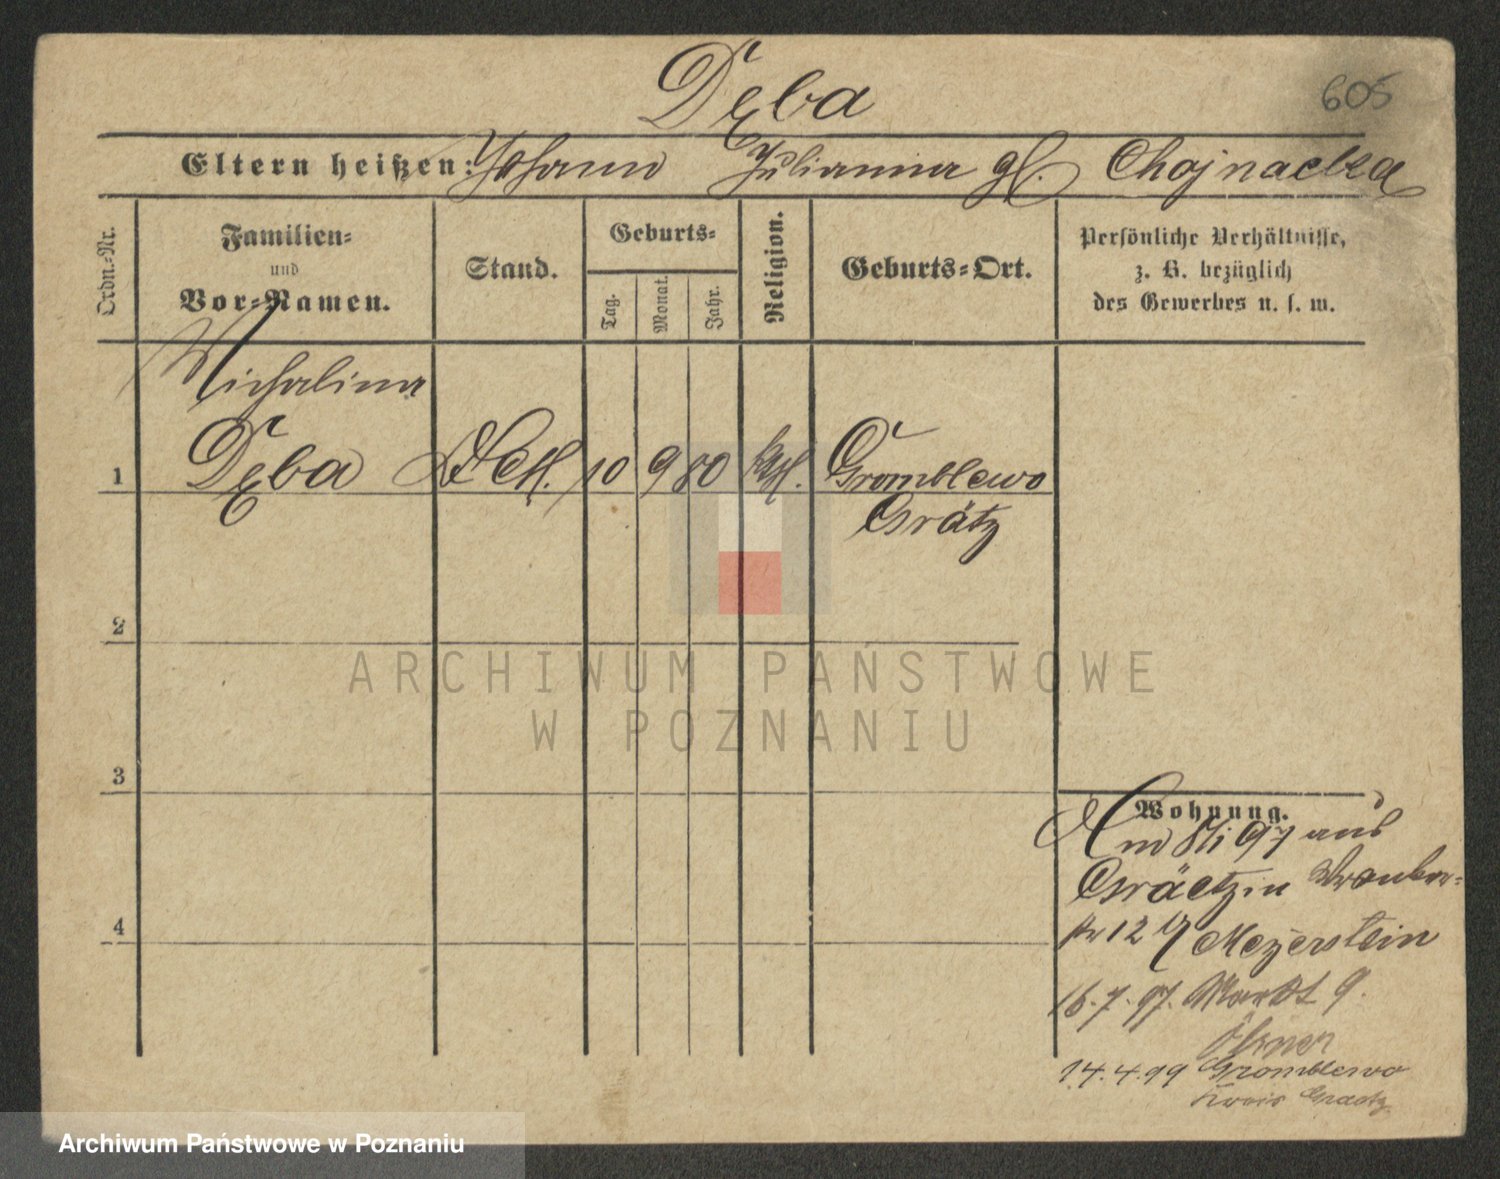 605
Dęba
Eltern heißen: Johann Julianna gb. Chojnacka
Ordn.-Nr.
Familien-
und
Vor-Namen.
Stand.
Geburts-
Tag.
Monat.
Jahr.
Religion.
Geburts-Ort.
Persönliche Verhältnisse,
z. B. bezüglich
des Gewerbes u. s. w.
Michalina
1 Dęba 10 9 80 kath. Gromblewo
Grätz
2
3
4
Wohnung.
Am 8/1 97 aus
Graetz in
12 Meyerstein
16.7.97. Markt 9.
14.4.99 Gromblewo
Kreis Graetz
ARCHIWUM PAŃSTWOWE
W POZNANIU
Archiwum Państwowe w Poznaniu